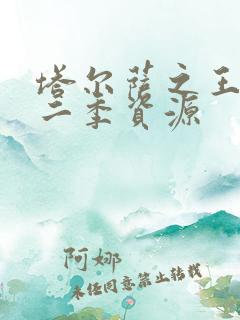 塔尔萨之王
二季资源
阿娜
未经同意禁止转载